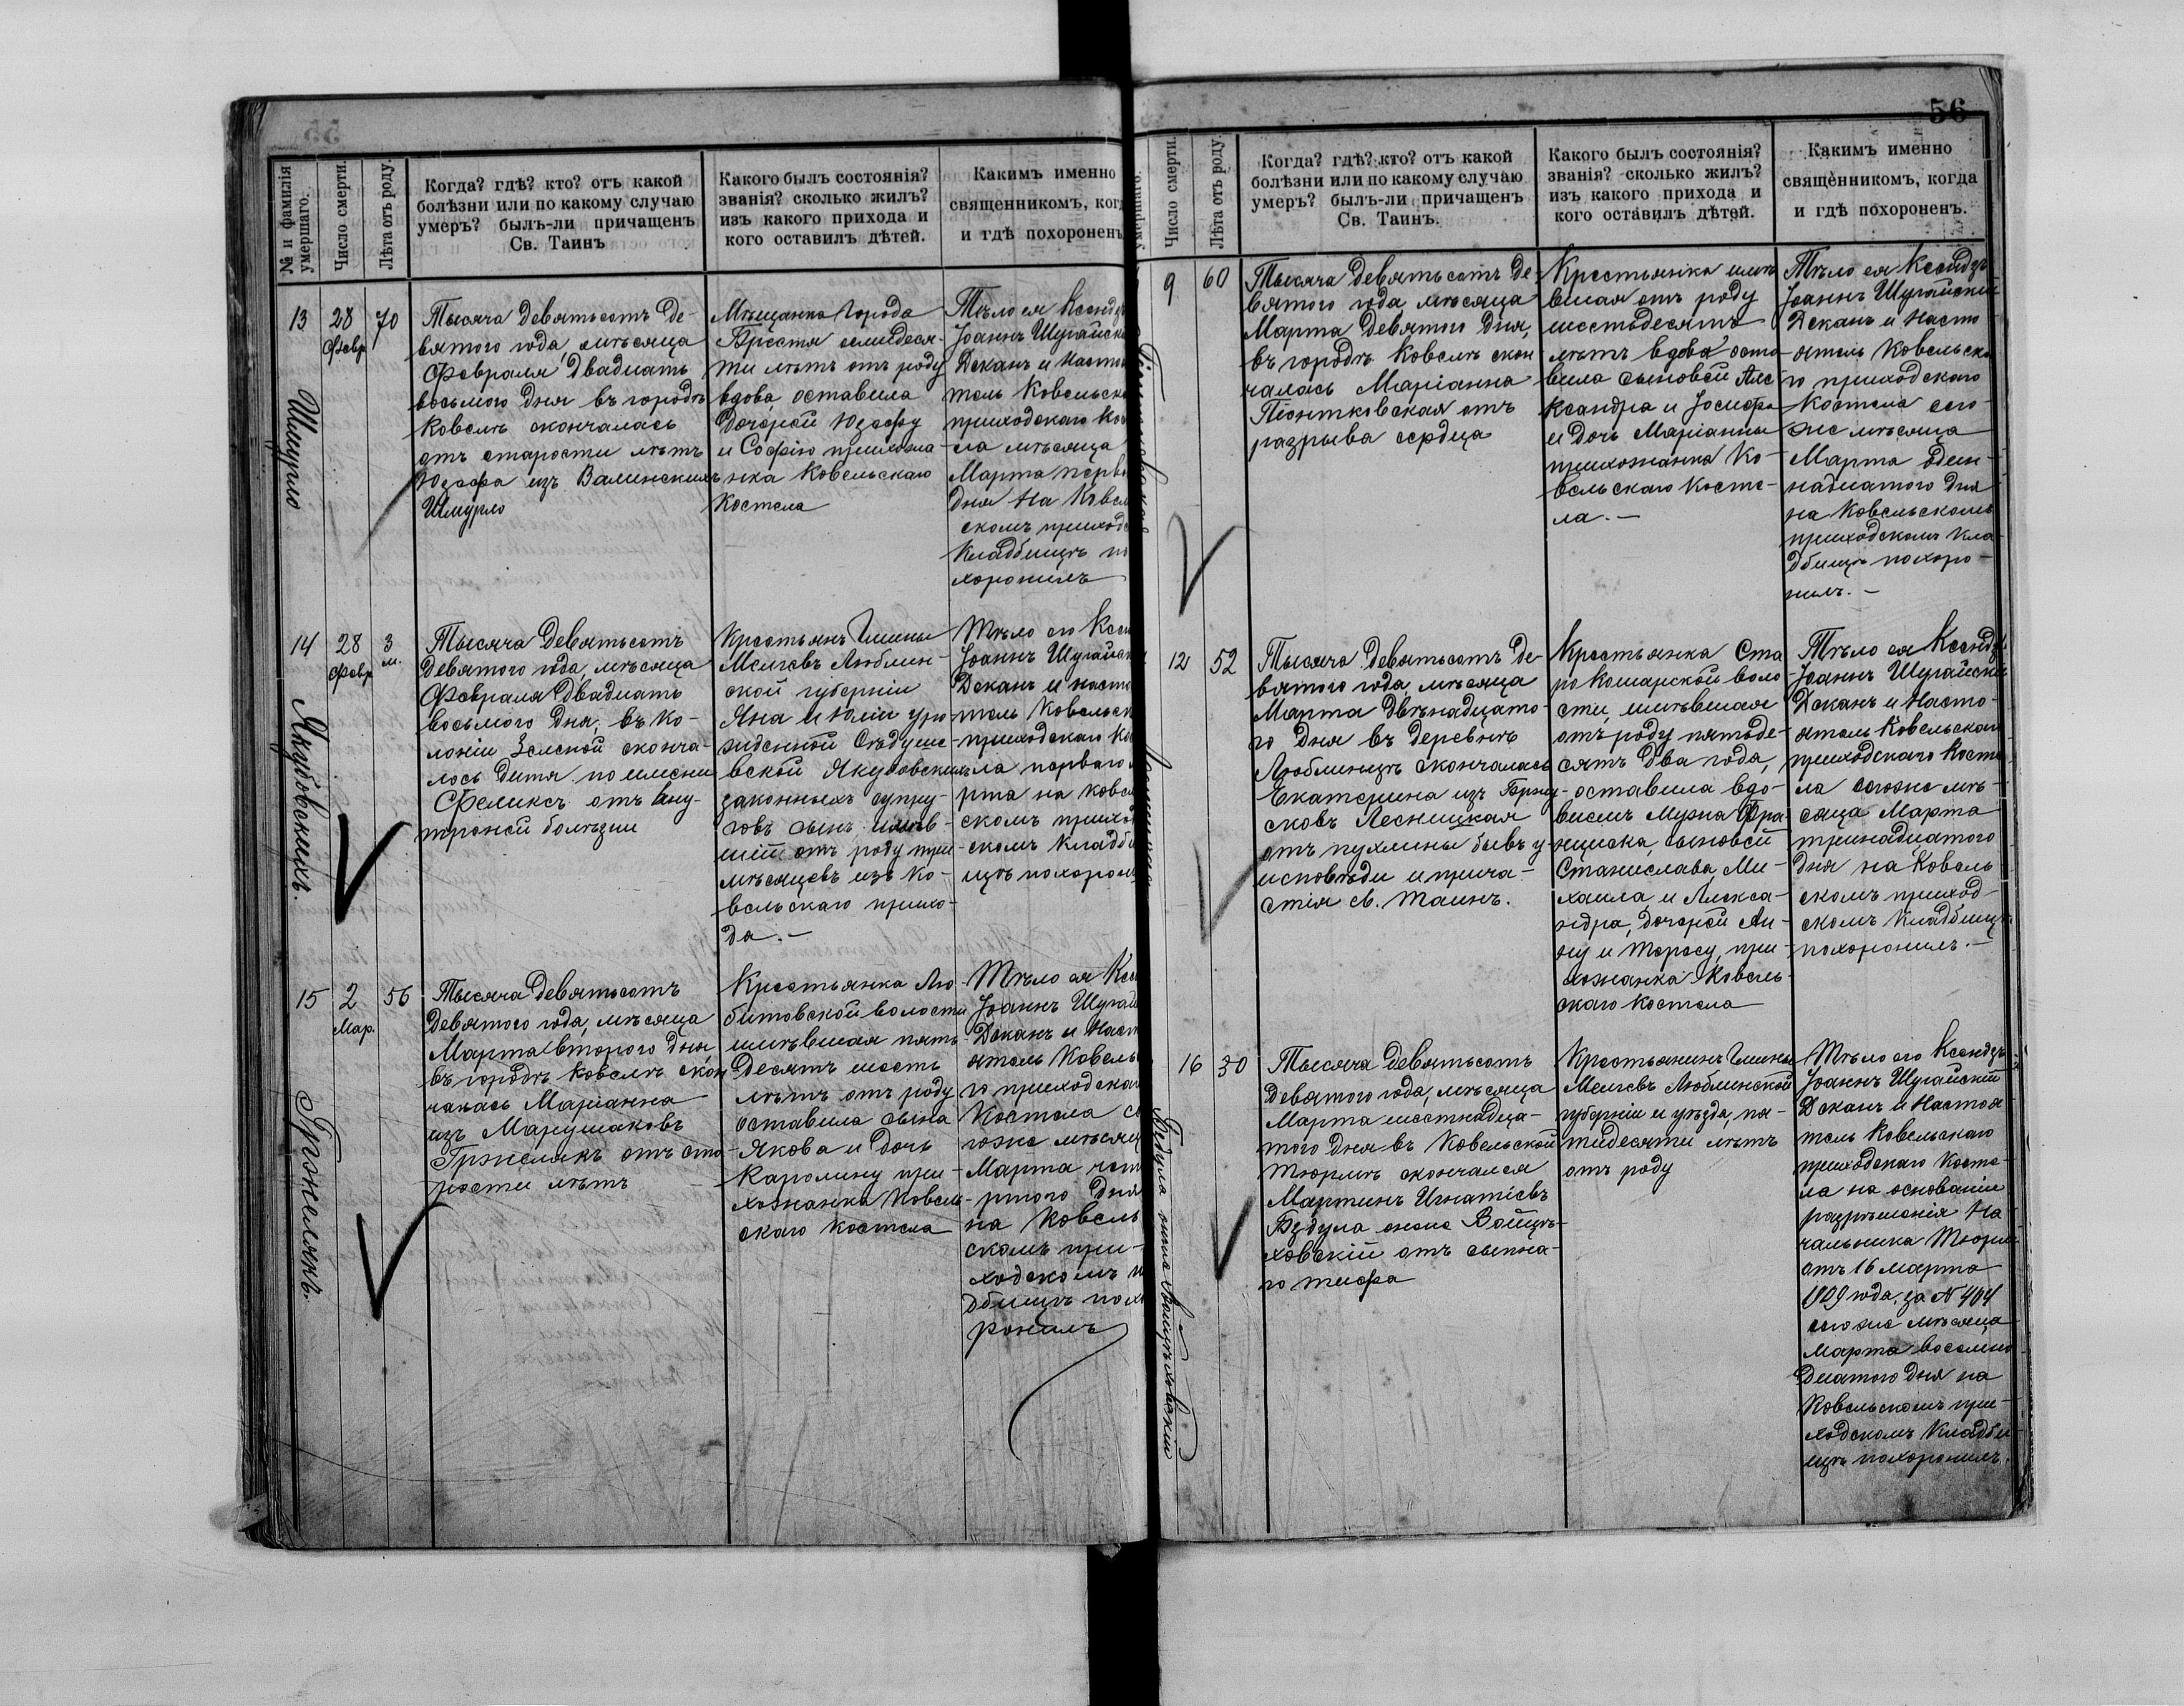 № и фамилія умершаго.
Число смерти.
Лѣта отъ роду.
Когда? гдѣ? кто? отъ какой
болѣзни или по какому случаю
умеръ? былъ-ли причащенъ
Св. Таинъ
Какого былъ состоянія?
званія? сколько жилъ?
изъ какого прихода и
кого оставилъ дѣтей.
Какимъ именно
священникомъ, ког
и гдѣ похороненъ
13
Шмурло
28
Февр
70
Тысяча девятьсотъ де-
вятого года, мѣсяца
Февраля двадцать
восьмого дня въ городѣ
Ковелѣ скончалась
отъ старости лѣтъ
Юзефа изъ Валинскихъ
Шмурло
Мѣщанка города
Бреста семидеся-
ти лѣтъ отъ роду
вдова, оставила
дочерей Юзефу
и Софію прихожа-
нка Ковельскаго
Костела
Тѣло ея Ксендз
Іоаннъ Шугайск
Деканъ и Насто
тель Ковельск
приходскаго Кос
ла мѣсяца
Марта перв
дня на Ковел
скомъ приходс
Кладбищѣ по
хоронилъ
14
Якубовскихъ.
28
Февр
3
м.
Тысяча девятьсотъ
девятого года, мѣсяца
Февраля двадцать
восьмого дня, въ ко-
лоніи Зеленой сконча-
лось дитя по имени
Феликсъ отъ вну-
тренней болѣзни
Крестьянъ Гмины
Мелгевъ Люблин-
ской губерніи
Яна и Юліи уро
жденной
вской Якубовскихъ
законныхъ супру-
говъ сынъ имѣв-
шій отъ роду три
мѣсяцевъ изъ Ко-
вельскаго прихо-
да.-
Тѣло его Ксен
Іоаннъ Шугайск
Деканъ и насто
тель Ковельск
приходскаго Ко
ла перваго
рта на Ковел
скомъ приход
скомъ Кладби
щѣ похорон
15
Гржелякъ.
2
Мар.
56
Тысяча девятьсотъ
девятого года, мѣсяца
Марта второго дня,
въ городѣ Ковелѣ скон
чалась Маріанна
изъ Марушаковъ
Гржелякъ отъ ста-
рости лѣтъ
Крестьянка Лю-
битовской волости
имѣвшая пять-
десятъ шесть
лѣтъ отъ роду
оставила сына
Якова и дочь
Каролину при-
хожанка Ковель-
скаго костела
Тѣло ея Ксе
Іоаннъ Шугай
Деканъ и Наст
ятель Ковель
го приходска
Костела с
гоже мѣсяц
Марта чет
ртого дня
на Ковель
скомъ при-
ходскомъ к
дбищѣ похо
ронилъ
56
умершаго.
Число смерти.
Лѣта отъ роду.
Когда? гдѣ? кто? отъ какой
болѣзни или по какому случаю
умеръ? былъ-ли причащенъ
Св. Таинъ.
Какого былъ состоянія?
званія? сколько жилъ?
изъ какого прихода и
кого оставилъ дѣтей.
Какимъ именно
священникомъ, когда
и гдѣ похороненъ.
9
60
Тысяча девятьсотъ де-
вятого года, мѣсяца
Марта девятого дня,
въ городѣ Ковелѣ скон
чалась Маріанна
Піонтковская отъ
разрыва сердца
Крестьянка имѣ
вшая отъ роду
шестьдесятъ
лѣтъ вдова оста
вила сыновей Але
ксандра и Іосифа
и дочь Маріанны
прихожанка Ко-
вельскаго косте-
ла.-
Тѣло ея Ксендзъ
Іоаннъ Шугайскій
Деканъ и Насто
ятель Ковельска
го приходскаго
Костела сего
же мѣсяца
Марта один-
надцатого дня
на Ковельскомъ
приходскомъ Кла-
дбищѣ похоро-
нилъ.-
12
52
Тысяча девятьсотъ де-
вятого года, мѣсяца
Марта двѣнадцато-
го дня въ деревнѣ
Люблинецъ скончалась
Екатерина изъ
Лесницкая
отъ пухлины бывъ у
исповѣди и прича-
стія св. таинъ.
Крестьянка Ста
ро Кошарской воло
сти, имѣвшая
отъ роду пятьде-
сятъ два года,
оставила вдо-
вцемъ мужа Фра-
нциска, сыновей
Станислава, Ми-
хаила, и Алекса-
ндра, дочерей Ан-
ну и Терезу, при-
хожанка Ковель-
скаго костела
Тѣло ея Ксендз
Іоаннъ Шугайскій
Деканъ и Насто-
ятель Ковельскаго
приходскаго Косте
ла сегоже мѣ-
сяца Марта
тринадцатого
дня на Ковель-
скомъ приход-
скомъ Кладбищѣ
похоронилъ.-
16
Бздула онже Войцѣховскій
50
Тысяча девятьсотъ
девятого года, мѣсяца
Марта шестнадца-
того дня въ Ковельской
тюрмѣ скончался
Мартинъ Игнатіевъ
Бздула онже Войцѣ-
ховскій отъ сыпна-
го тифа
Крестьянинъ Гмины
Мелгевъ Люблинской
губерніи и уѣзда, пя-
тидесяти лѣтъ
отъ роду
Тѣло его Ксендзъ
Іоаннъ Шугайскій
Деканъ и Настоя-
тель Ковельскаго
приходскаго Косте-
ла на основаніи
разрѣшенія На-
чальника Тюрмы
отъ 16 марта
1909 года за № 464
сегоже мѣсяца
Марта восемна-
дцатого дня на
Ковельскомъ при-
ходскомъ Кладби-
щѣ похоронилъ.